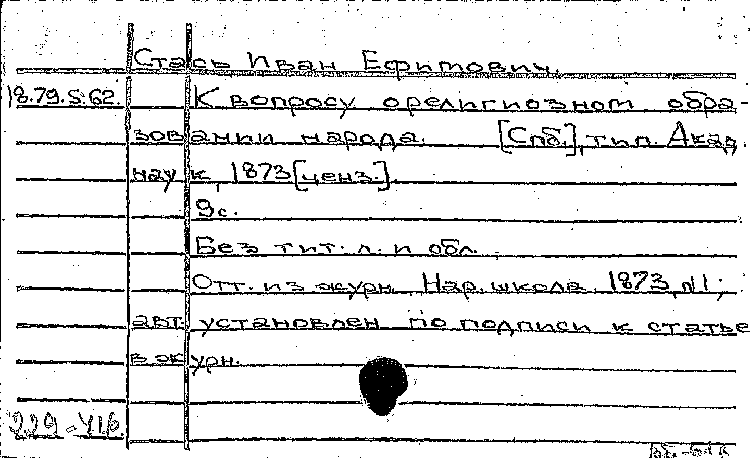 Стась Иван Ефимович.
18.79.5.62. К вопросу о религиозном обра-
зовании народа. [Спб.], тип. Акад.
наук, 1873 [ценз.].
9с.
Без тит. л. и обл.
Отт. из журн. Нар. школа 1873, №1;
авт. установлен по подписи к статье
в журн.